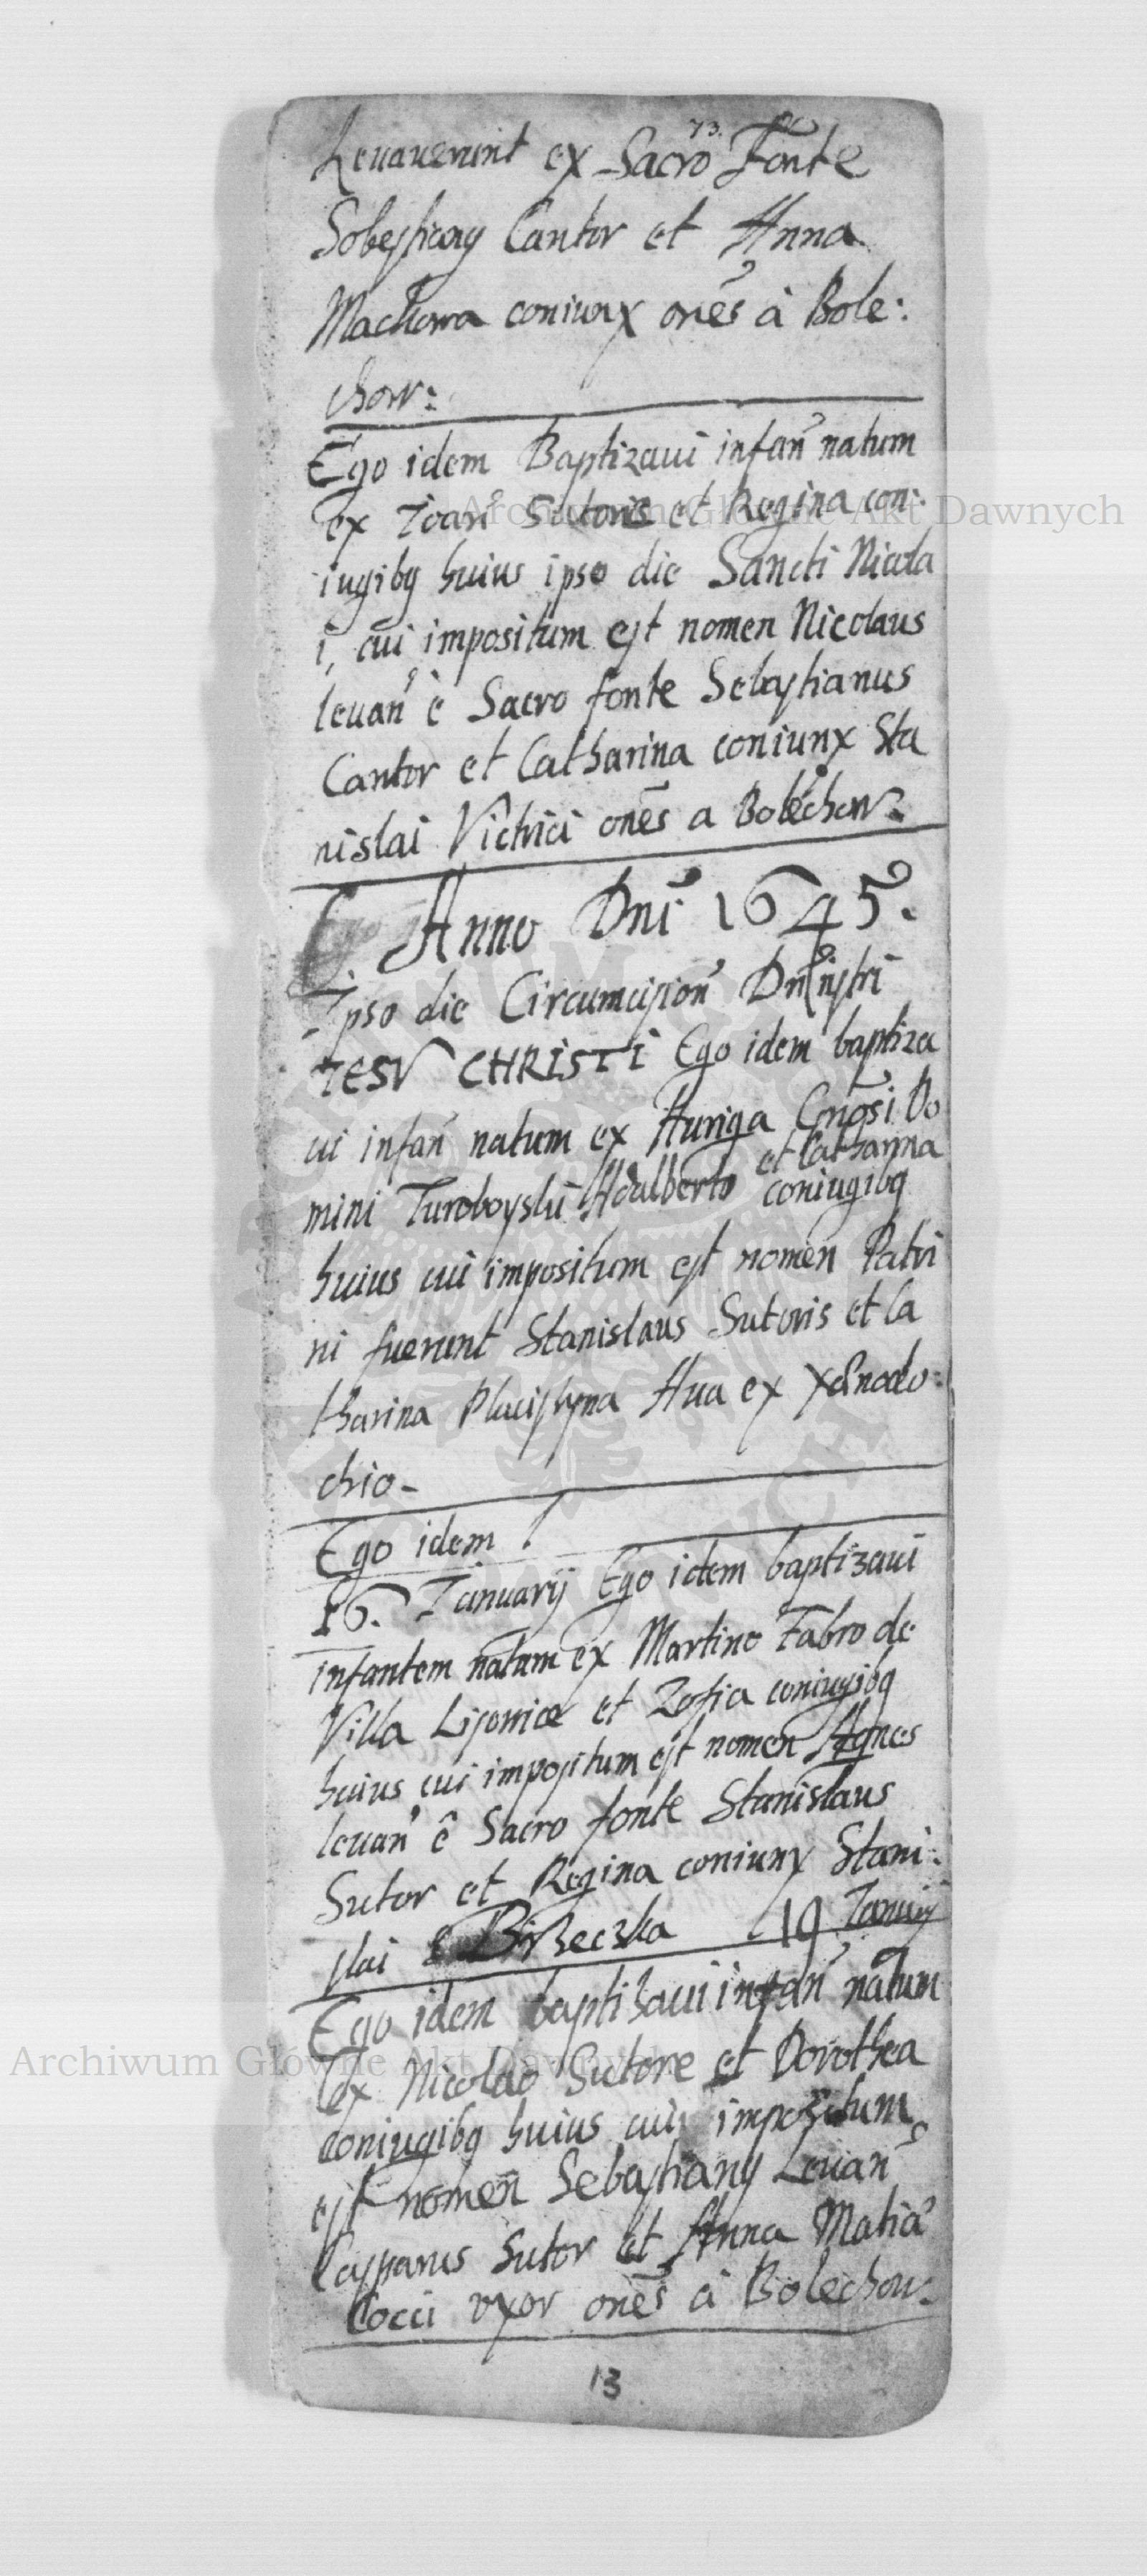 73.
Leuauerunt ex Sacro Fonte
Sobestiany Cantor et Anna
Machowa coniunx onēs à Bole:
chow:
Ego idem Baptizaui infan̄ natum
ex Ioan̄ Sutoris et Regina con:
iugibq huius ipso die Sancti Nicola
i, cui impositum est nomen Nicolaus
leuan̄ è Sacro fonte Sebastianus
Cantor et Catharina coniunx Sta
nislai Victrici onēs a Bolechow:
Anno Dnī 1645.
Ipso die Circumcision̄ Dnī nstri
IESV CHRISTI Ego idem baptiza
ui infan̄ natum ex Auriga Gnōsi Do
mini Turoboyslū Adalberto et Catharina
coniugibq
huius cui impositum est nomen Patri
ni fuerunt Stanislaus Sutoris et Ca
tharina Plucistyna Aua ex Xenodo:
chio-
Ego idem
16. Ianuarij Ego idem baptizaui
infantem natum ex Martino Fabro de
Villa Lisowice et Zofia coniugibq
huius cui impositum est nomen Agnes
leuan̄ ê Sacro fonte Stanislaus
Sutor et Regina coniunx Stani:
slai Bißeczka 19 Ianuarij
Ego idem baptizaui infan̄ natum
ex Nicolao Sutore et Dorothea
coniugibq huius cui impositum
est nomen Sebastiany Leuan̄
Casparus Sutor et Anna Matiā
Cocci vxor onēs à Bolechow:
13
Archiwum Główne Akt Dawnych
Archiwum Główne Akt Dawnych